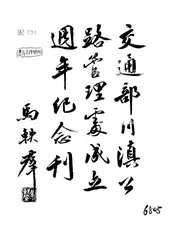 交通部川滇公
路管理處成立
週年紀念刊
馬軼羣
6845